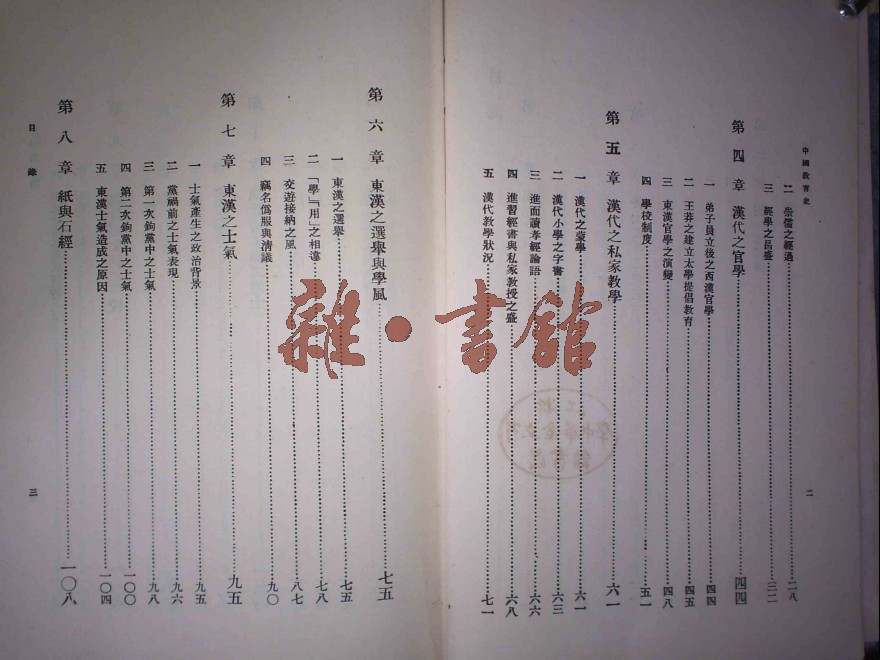 中國敎育史
二 崇儒之經過……二八
三 經學之昌盛……三二
第四章 漢代之官學……四四
一 弟子員立後之西漢官學……四四
二 王莽之建立太學提倡敎育……四五
三 東漢官學之演變……四八
四 學校制度……五一
第五章 漢代之私家敎學……六一
一 漢代之蒙學……六一
二 漢代小學之字書……六三
三 進而讀孝經論語……六六
四 進習經書與私家敎授之盛……六八
五 漢代敎學狀況……七一
二
第六章 東漢之選舉與學風……七五
一 東漢之選舉……七五
二 「學」「用」之相違……七八
三 交遊接納之風……八七
四 竊名僞服與清議……九〇
第七章 東漢之士氣……九五
一 士氣產生之政治背景……九五
二 黨禍前之士氣表現……九六
三 第一次鉤黨中之士氣……九八
四 第二次鉤黨中之士氣……一〇〇
五 東漢士氣造成之原因……一〇四
第八章 紙與石經……一〇八
目錄
三
雜·書館